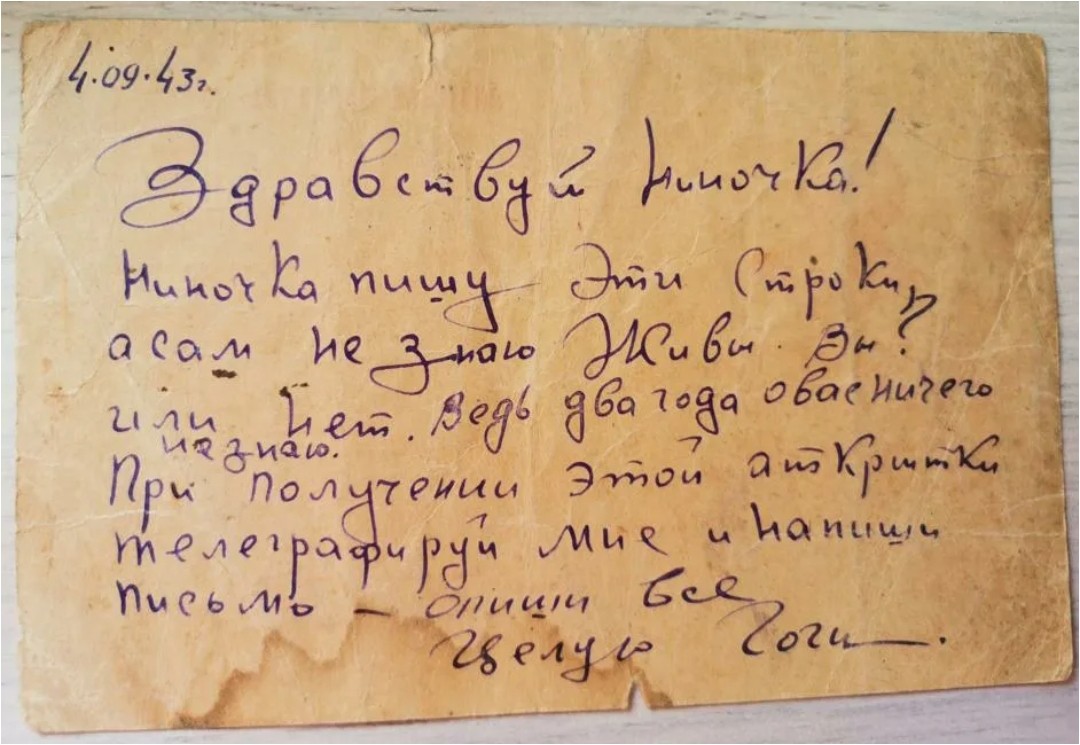 4.09.43г.
Здравствуй Ниночка!
Ниночка пишу эти строки,
а сам не знаю Живы Вы?
или нет. Ведь два года о вас ничего
не знаю.
При получении этой аткритки
телеграфируй мне и напиши
письмо – опиши все
Целую Гоги.